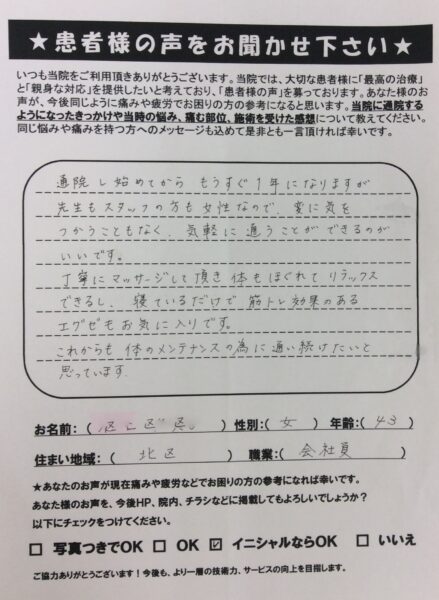 ★患者様の声をお聞かせ下さい★
いつも当院をご利用頂きありがとうございます。当院では、大切な患者様に「最高の治療」
と「親身な対応」を提供したいと考えており、「患者様の声」を募っております。あなた様のお
声が、今後同じように痛みや疲労でお困りの方の参考になると思います。当院に通院する
ようになったきっかけや当時の悩み、痛む部位、施術を受けた感想について教えてください。
同じ悩みや痛みを持つ方へのメッセージも込めて是非とも一言頂ければ幸いです。
通院し始めてから もうすぐ1年になりますが
先生もスタッフの方も女性なので、変に気を
つかうこともなく、気軽に通うことができるのが
いいです。
丁寧にマッサージして頂き体もほぐれてリラックス
できるし、寝ているだけで筋トレ効果のある
エグゼもお気に入りです。
これからも体のメンテナンスの為に通い続けたいと
思っています。
お名前:( ) 性別:( 女 ) 年齢:( 43 )
住まい地域:( 北区 ) 職業:( 会社員 )
★あなたのお声が現在痛みや疲労などでお困りの方の参考になれば幸いです。
あなた様のお声を、今後HP、院内、チラシなどに掲載してもよろしいでしょうか?
以下にチェックをつけてください。
□ 写真つきでOK □ OK ☑ イニシャルならOK □ いいえ
ご協力ありがとうございます!今後も、より一層の技術力、サービスの向上を目指します。